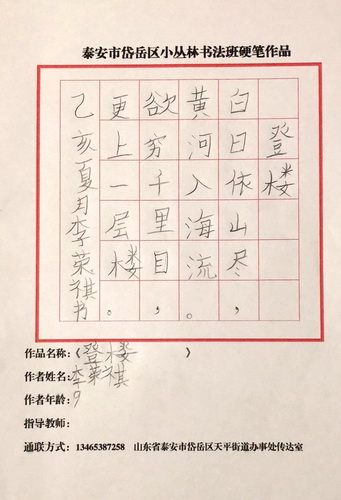 泰安市岱岳区小丛林书法班硬笔作品
登楼
白日依山尽，
黄河入海流。
欲穷千里目，
更上一层楼。
乙亥夏月李荣祺书。
作品名称:《登楼》
作者姓名:李荣祺
作者年龄:9
指导教师:
通联方式: 13465387258 山东省泰安市岱岳区天平街道办事处传达室